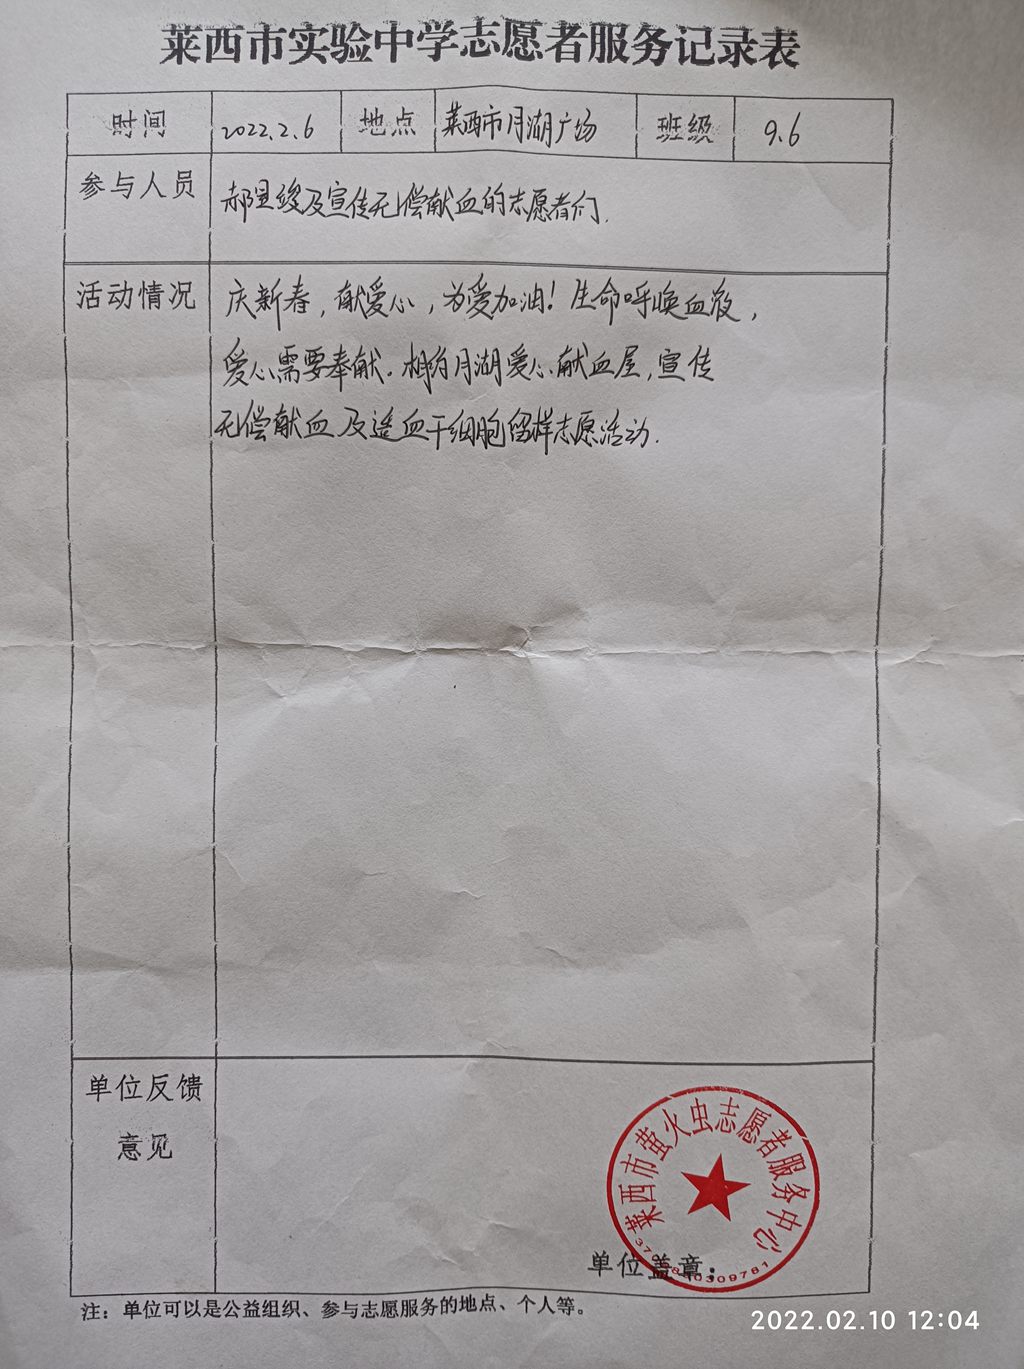 莱西市实验中学志愿者服务记录表
时间 2022.2.6 地点 莱西市月湖广场 班级 9.6
参与人员 郝昱竣及宣传无偿献血的志愿者们.
活动情况 庆新春,献爱心,为爱加油!生命呼唤血液,
爱心需要奉献.相约月湖爱心献血屋,宣传
无偿献血及造血干细胞留样志愿活动.
单位反馈
意见
莱西市萤火虫志愿者服务中心
单位盖章:
注:单位可以是公益组织、参与志愿服务的地点、个人等。
2022.02.10 12:04